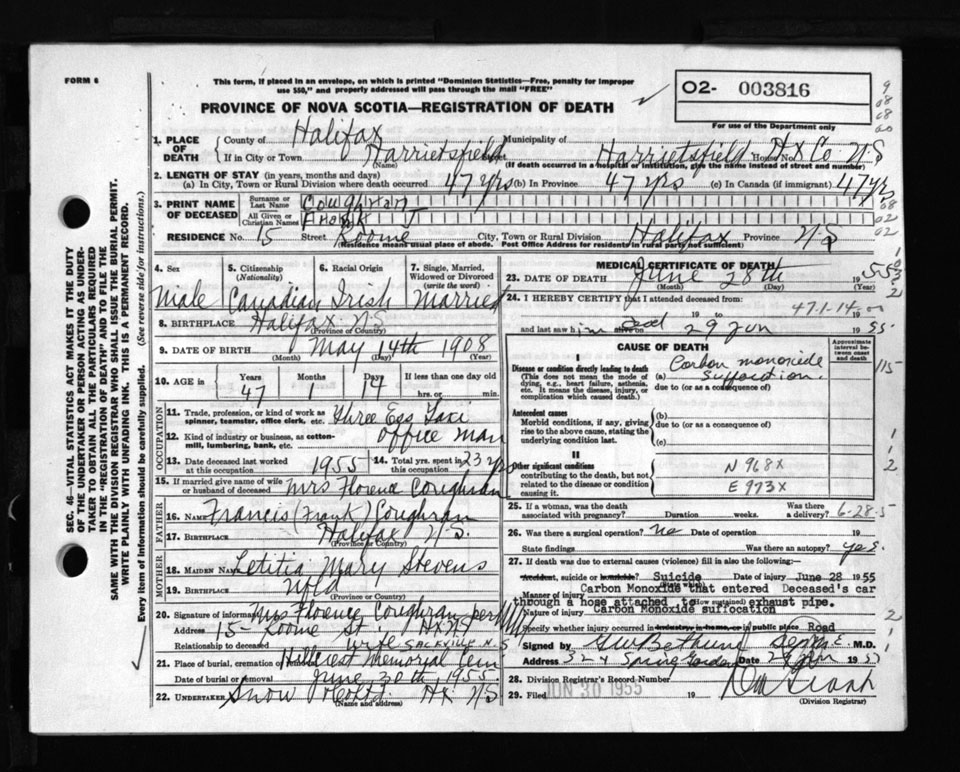 FORM 6
This form, if placed in an envelope, on which is printed "Dominion Statistics—Free, penalty for improper
use $50," and properly addressed will pass through the mail "FREE"
PROVINCE OF NOVA SCOTIA—REGISTRATION OF DEATH
O2- 003816
For use of the Department only
SEC. 46—VITAL STATISTICS ACT MAKES IT THE DUTY
OF THE UNDERTAKER OR PERSON ACTING AS UNDER-
TAKER TO OBTAIN ALL THE PARTICULARS REQUIRED
IN THE "REGISTRATION OF DEATH" AND TO FILE THE
SAME WITH THE DIVISION REGISTRAR WHO SHALL ISSUE THE BURIAL PERMIT.
WRITE PLAINLY WITH UNFADING INK. THIS IS A PERMANENT RECORD.
Every item of information should be carefully supplied. (See reverse side for instructions.)
1. PLACE OF DEATH
County of Halifax Municipality of
If in City or Town Harrietsfield (Name) Harrietsfield House No. HX Co N.S
(If death occurred in a hospital or institution, give the name instead of street and number)
2. LENGTH OF STAY (in years, months and days)
(a) In City, Town or Rural Division where death occurred 47 yrs (b) In Province 47 yrs (c) In Canada (if immigrant) 47 yrs
3. PRINT NAME OF DECEASED
Surname or Last Name Coughran
All Given or Christian Names Frank J
RESIDENCE No. 15 Street Roome City, Town or Rural Division Halifax Province N.S
(Residence means usual place of abode. Post Office Address for residents in rural parts not sufficient)
4. Sex Male
5. Citizenship (Nationality) Canadian
6. Racial Origin Irish
7. Single, Married, Widowed or Divorced (write the word) Married
8. BIRTHPLACE Halifax N.S
(Province or Country)
9. DATE OF BIRTH May 14th 1908
(Month) (Day) (Year)
10. AGE in Years 47 Months 1 Days 14 If less than one day old hrs. or min.
OCCUPATION
11. Trade, profession, or kind of work as spinner, teamster, office clerk, etc. Three Ess Taxi
12. Kind of industry or business, as cotton-mill, lumbering, bank, etc. office man
13. Date deceased last worked at this occupation 1955 14. Total yrs. spent in this occupation 23 yrs
15. If married give name of wife or husband of deceased Mrs Florence Coughran
FATHER
16. NAME Francis (Frank) Coughran
17. BIRTHPLACE Halifax N.S.
(Province or Country)
MOTHER
18. MAIDEN NAME Letitia Mary Stevens
19. BIRTHPLACE Nfld
(Province or Country)
20. Signature of informant Mrs Florence Coughran per
Address 15- Roome St HX N.S
Relationship to deceased wife SACKVILLE N.S
21. Place of burial, cremation or removal Hillcrest Memorial Cem
Date of burial or removal June 30th 1955.
22. UNDERTAKER Snow Co Ltd HX N.S
(Name and address)
MEDICAL CERTIFICATE OF DEATH
23. DATE OF DEATH June 28th 1955
(Month) (Day)
24. I HEREBY CERTIFY that I attended deceased from:
19 to 19
47-1-14
and last saw him alive on dead 29 Jun 1955
CAUSE OF DEATH
Approximate interval between onset and death
I
Disease or condition directly leading to death
(This does not mean the mode of dying, e.g., heart failure, asthenia, etc. It means the disease, injury, or complication which caused death.)
(a) Carbon monoxide
due to (or as a consequence of)
Antecedent causes
Morbid conditions, if any, giving rise to the above cause, stating the underlying condition last.
(b)
due to (or as a consequence of)
(c)
II
Other significant conditions
contributing to the death, but not related to the disease or condition causing it.
N 968X
E 973X
25. If a woman, was the death associated with pregnancy? Duration weeks. Was there a delivery?
6-28-5
26. Was there a surgical operation? no Date of operation 19
State findings Was there an autopsy? yes.
27. If death was due to external causes (violence) fill in also the following:
Accident, suicide or homicide? Suicide Date of injury June 28 1955
(State which)
Manner of injury Carbon Monoxide that entered Deceased's car
through a hose attached to exhaust pipe.
(How sustained)
Nature of injury Carbon Monoxide suffocation
Specify whether injury occurred in industry, in home, or in public place Road
Signed by M.D.
Address 324 Spring Garden Date 29 Jun 1955
28. Division Registrar's Record Number
29. Filed JUN 30 1955 19
(Division Registrar)